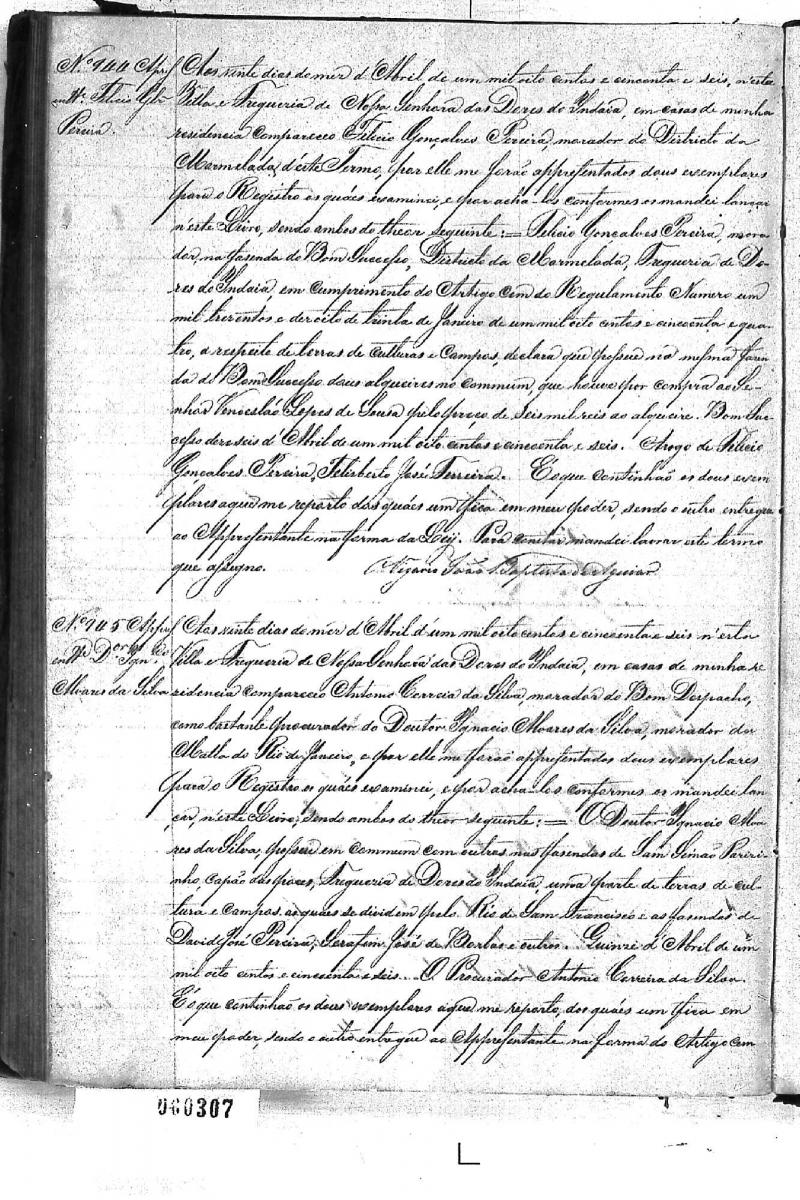 Nº 944 Apresentte. Felicio Glz Pereira.
Aos vinte dias do mez d'Abril de um mil oito centos e cincoenta e seis, n'esta
Villa e Freguezia de Nossa Senhora das Dores do Indaiá, em casas de minha
residencia compareceo Felicio Gonçalves Pereira, morador do Districto da
Marmelada, d'este Termo, e por elle me forão appresentados dous exemplares
para o Registro os quáes examinei, e por acha-los conformes os mandei lançar
n'este Livro, sendo ambos do theor seguinte: = Felicio Gonçalves Pereira, mora-
dor, na fasenda do Bom Successo, Districto da Marmelada, Freguezia de Do-
res do Indaiá, em cumprimento do Artigo cem do Regulamento Numero um
mil trezentos e dezoito de trinta de Janeiro de um mil oito centos e cincoenta e qua-
tro, a respeito de terras de culturas e campos, declara que possue na mesma fazen-
da do Bom Successo dous alqueires no commum, que houve por compra ao Se-
nhor Venceslão Lopes de Sousa pelo preço de seis mil reis ao alqueire. Bom Suc-
cesso dezaseis d'Abril de um mil oito centos e cincoenta e seis. Arogo de Felicio
Gonçalves Pereira, Felisberto José Ferreira. É o que continhão os dous exem-
plares aque me reporto dos quáes um fica em meu poder, sendo o outro entregue
ao Appresentante na forma da Ley. Para constar mandei lavrar este termo
que assigno. Vigario João Baptista de Aguiar
Nº 945 Appresentte. Dor. Ignacio
Alvares da Silva
Aos vinte dias do mez d'Abril d'um mil oito centos e cincoenta e seis n'esta
Villa e Freguezia de Nossa Senhora das Dores do Indaiá, em casas de minha re-
zidencia compareceo Antonio Correia da Silva, morador do Bom Despacho,
como bastante procurador do Doutor Ignacio Alvares da Silva, morador da
Matta do Rio de Janeiro, e por elle me forão appresentados dous exemplares
para o Registro os quáes examinei, e por acha-los conformes os mandei lan-
çar, n'este Livro, sendo ambos do theor seguinte: = O Doutor Ignacio Alva-
res da Silva, possue em commum com outros nas fasendas de Sam Simão
Capão das poces, Freguezia de Dores do Indaiá, uma parte de terras de cul-
tura e campos as quaes se dividem pelo Rio de Sam Francisco e as fasendas de
David José Pereira, Serafim José de Borbas e outros. Quinze d'Abril de um
mil oito centos e cincoenta e seis. O Procurador Antonio Correia da Silva.
É o que continhão os dous exemplares aque me reporto, dos quáes um fica em
meu poder, sendo o outro entregue ao Appresentante na forma do Artigo cem
060307